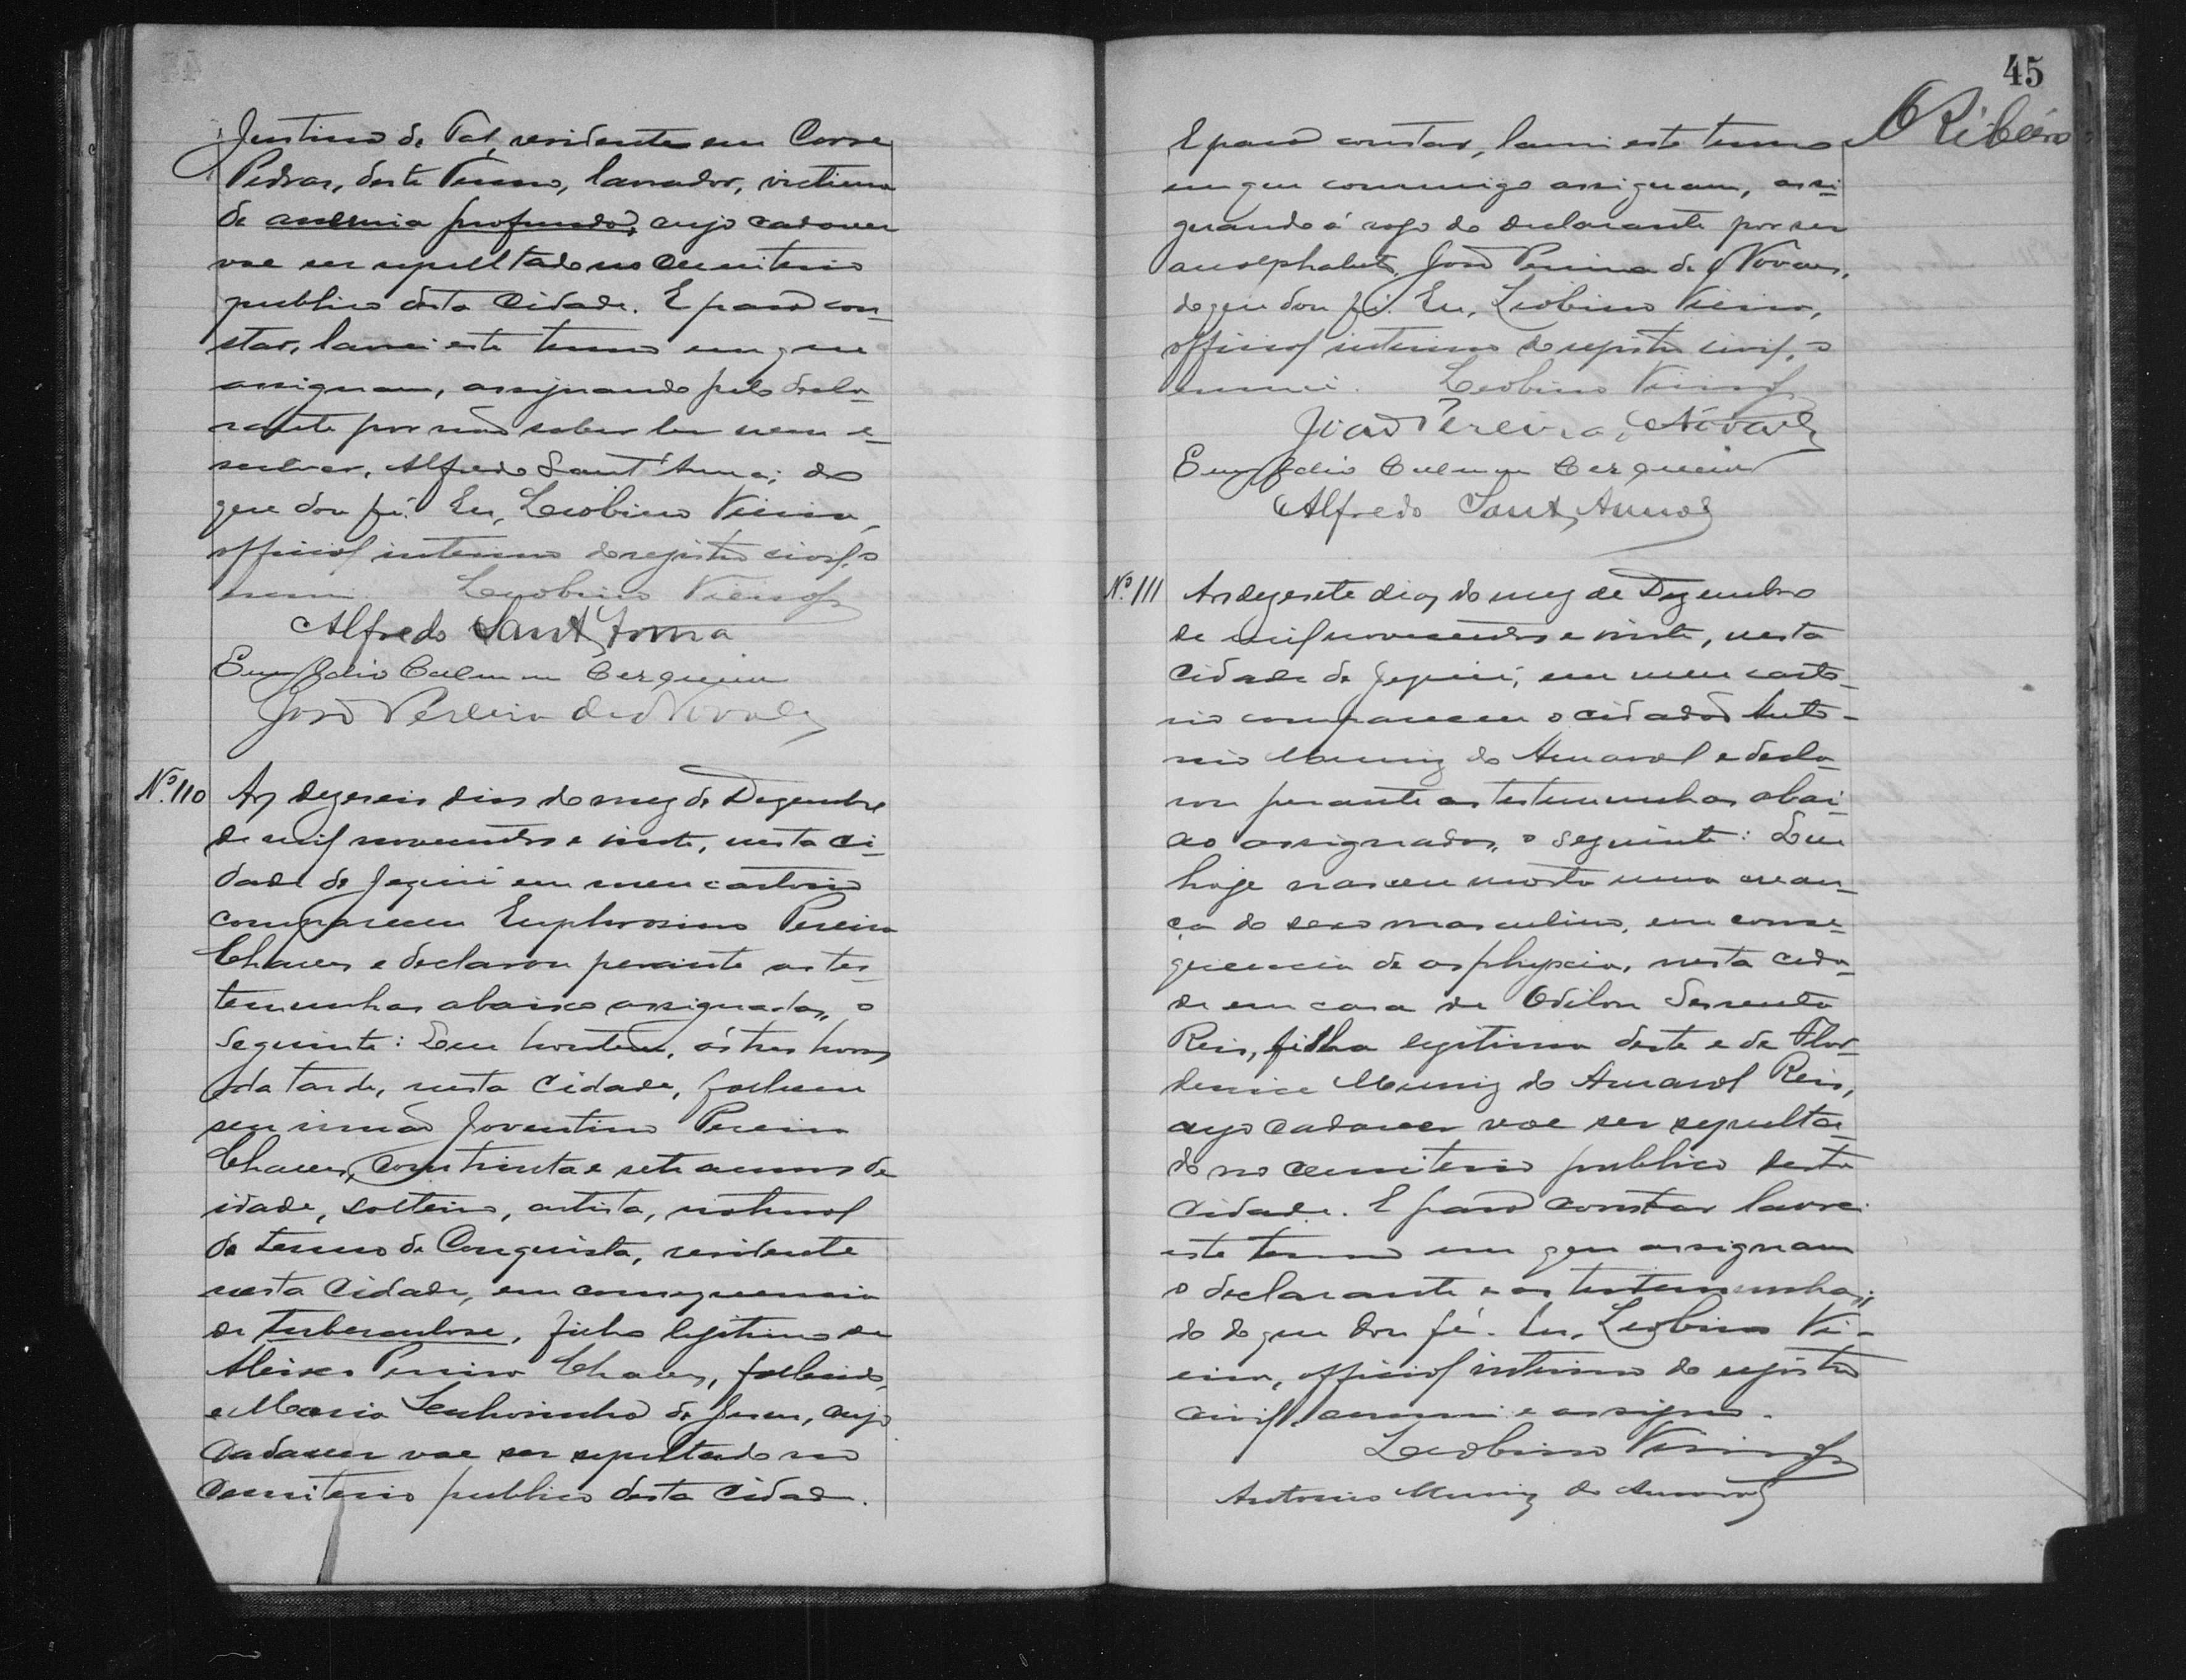 Justino de Tal, residente em Corre
Pedras, deste Termo, lavrador, victima
de anemia profunda, cujo cadaver
vae ser sepultado no Cemiterio
publico desta Cidade. E para con-
star, lavrei este termo em que
assignam, assignando pelo decla-
rante por não saber ler nem e-
screver, Alfredo Sant'Anna; do
que dou fé. Eu, Leobino Vieira,
official interino do registro civil, o
escrevi. Leobino Vieira
Alfredo Sant'Anna
Cerqueira
José Pereira de Novaes
Nº 110 Aos dezeseis dias do mez de Dezembro
de mil novecentos e vinte, nesta Ci-
dade de Jequié em meu cartorio
compareceu Euphrosino Pereira
Chaves e declarou perante as tes-
temunhas abaixo assignadas, o
seguinte: Que hontem, ás tres horas
da tarde, nesta Cidade, falleceu
seu irmão Joventino Pereira
Chaves, com trinta e sete annos de
idade, solteiro, artista, natural
do termo de Conquista, residente
nesta Cidade, em consequencia
de tuberculose, filho legitimo de
Aleixo Pereira Chaves, fallecido,
e Maria Senhorinha de Jesus, cujo
cadaver vae ser sepultado no
Cemiterio publico desta Cidade.
45
Ribeiro
E para constar, lavrei este termo
em que commigo assignam, assi-
gnando á rogo do declarante por ser
analphabeto, José Pereira de Novaes,
do que dou fé. Eu, Leobino Vieira,
official interino do registro civil, o
escrevi. Leobino Vieira
João Pereira Novaes
Cerqueira
Alfredo Sant'Anna
Nº 111 Aos dezesete dias do mez de Dezembro
de mil novecentos e vinte, nesta
Cidade de Jequié, em meu carto-
rio compareceu o cidadão Anto-
nio Muniz do Amaral e decla-
rou perante as testemunhas abai-
xo assignadas, o seguinte: Que
hoje nasceu morta uma crean-
ça do sexo masculino, em conse-
quencia de asphyxia, nesta cida-
de em casa de Odilon
Reis, filha legitima deste e de Flor-
denice Muniz do Amaral Reis,
cujo cadaver vae ser sepulta-
do no cemiterio publico desta
Cidade. E para constar lavrei
este termo em que assignam
o declarante e as testemunhas;
do do que dou fé. Eu, Leobino Vi-
eira, official interino do registro
civil, escrevi e assigno.
Leobino Vieira
Antonio Muniz do Amaral